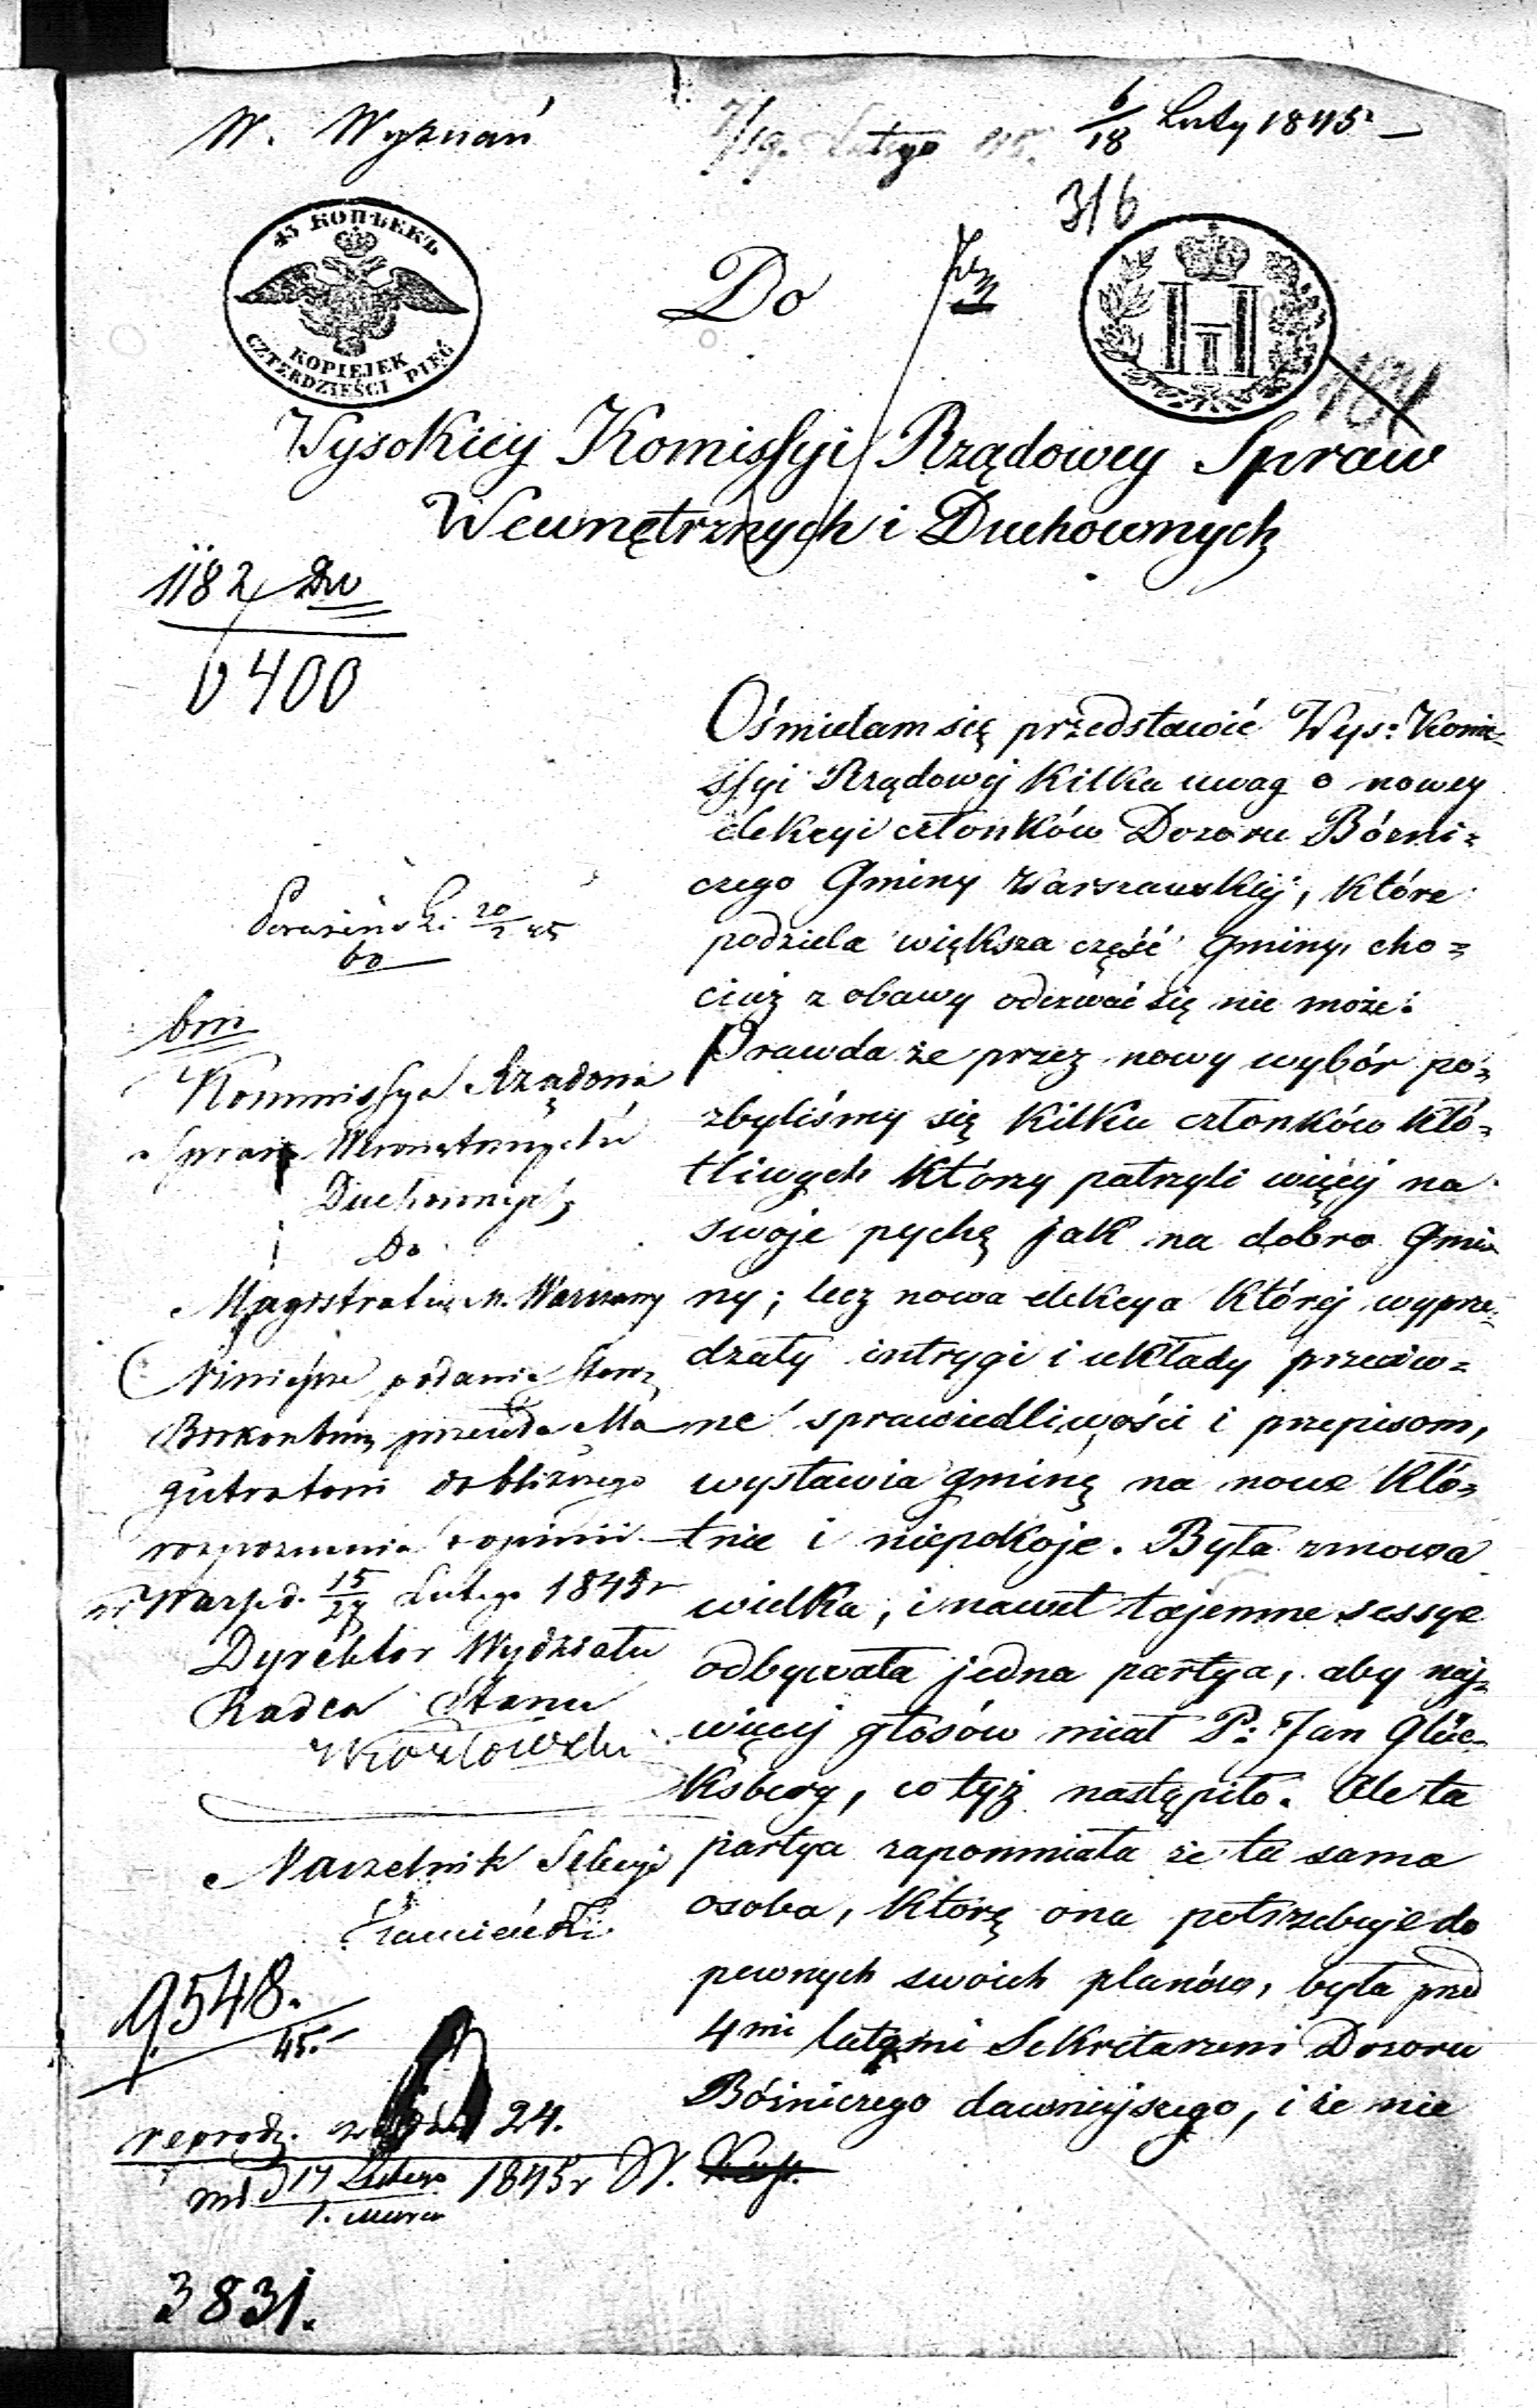 W. Wyznań
7/19. Lutego 845.
6/18 Luty 1845
316
45 КОПѢЕКЪ
KOPIEJEK
CZTERDZIEŚCI PIĘĆ
Do
HI
Wysokiey Komissyi Rządowey Spraw
Wewnętrznych i Duchownych
1182
6400
Ośmielam się przedstawić Wys: Komi-
ssyi Rządowéj kilka uwag o nowey
elekcyi członków Dozoru Bózni-
czego Gminy Warszawskiéj, które
podziela większa część Gminy, cho-
ciaż z obawy odezwać się nie może:
Prawda że przez nowy wybór po-
zbyliśmy się kilku członków kłó-
tliwych którzy patrzyli więcéj na
swoje pychę jak na dobro Gmi-
ny; lecz nowa elekcya któréj wyprze-
dzały intrygi i układy przeciw-
ne sprawiedliwości i przepisom,
wystawia gminę na nowe kłó-
tnie i niepokoje. Była zmowa
wielka, i nawet tajemne sessye
odbywała jedna partya, aby naj-
więcéj głosów miał P: Jan Glüc-
ksberg, co téż nastąpiło. Ale ta
partya zapomniała że ta sama
osoba, którę ona potrzebuje do
pewnych swoich planów, była przed
4mi latami Sekretarzem Dozoru
Bóżniczego dawniejszego, i że nie
20/2 45
bm
Kommissya Rządowa
Spraw Wewnętrznych i
Duchownych
Do
Magistratu M. Warszawy
Niniejsze podanie Star:
przesyła Ma
gistratowi do bliższego
rozpoznania i opinii
w Warsz. d. 15/27 Lutego 1845 r
Dyrektor Wydziału
Radca Stanu
Kozłowski
Naczelnik Sekcyi
9548.
45.
24.
17 Lutego
1. Marca
1845 r
3831.